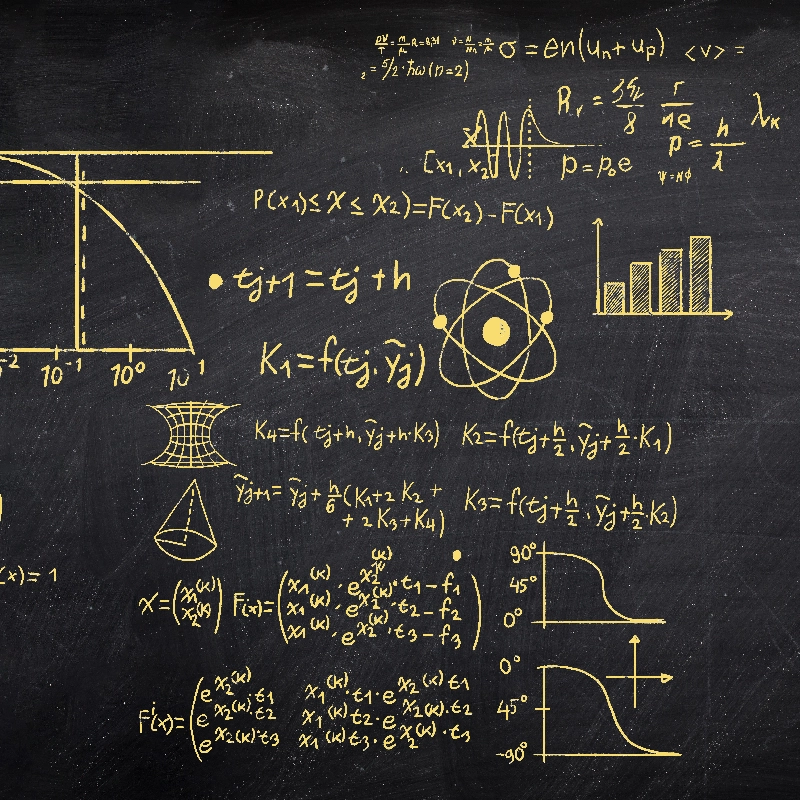 σ = en(u_n + u_p) <v> =
= 5/2·ħω (n=2)
R_v = r/ne λ_K
p = h/λ
[x₁, x₂ p = p₀e
ψ = Nϕ
P(x₁) ≤ X ≤ x₂) = F(x₂) - F(x₁)
• tj+1 = tj + h
K₁ = f(tj, ỹj)
10⁻¹ 10⁰ 10¹
K₄ = f( tj+h, ỹj+h·K₃) K₂ = f(tj+h/2, ỹj+h/2·K₁)
ỹj+1 = ỹj + h/6 (K₁+2 K₂ +
+ 2 K₃ + K₄)
K₃ = f(tj+h/2, ỹj+h/2·K₂)
(x) = 1
90°
45°
0°
X = (x₁(k) x₂(k)) F(x) = (x₁(k)·e^x₂(k)·t₁ - f₁
x₁(k)·e^x₂(k)·t₂ - f₂
x₁(k)·e^x₂(k)·t₃ - f₃)
0°
45°
-90°
F(x) = (e^x₂(k)·t₁ x₁(k)·t₁·e^x₂(k)t₁
e^x₂(k)·t₂ x₁(k)t₂·e^x₂(k)·t₂
e^x₂(k)·t₃ x₁(k)t₃·e^x₂(k)·t₃